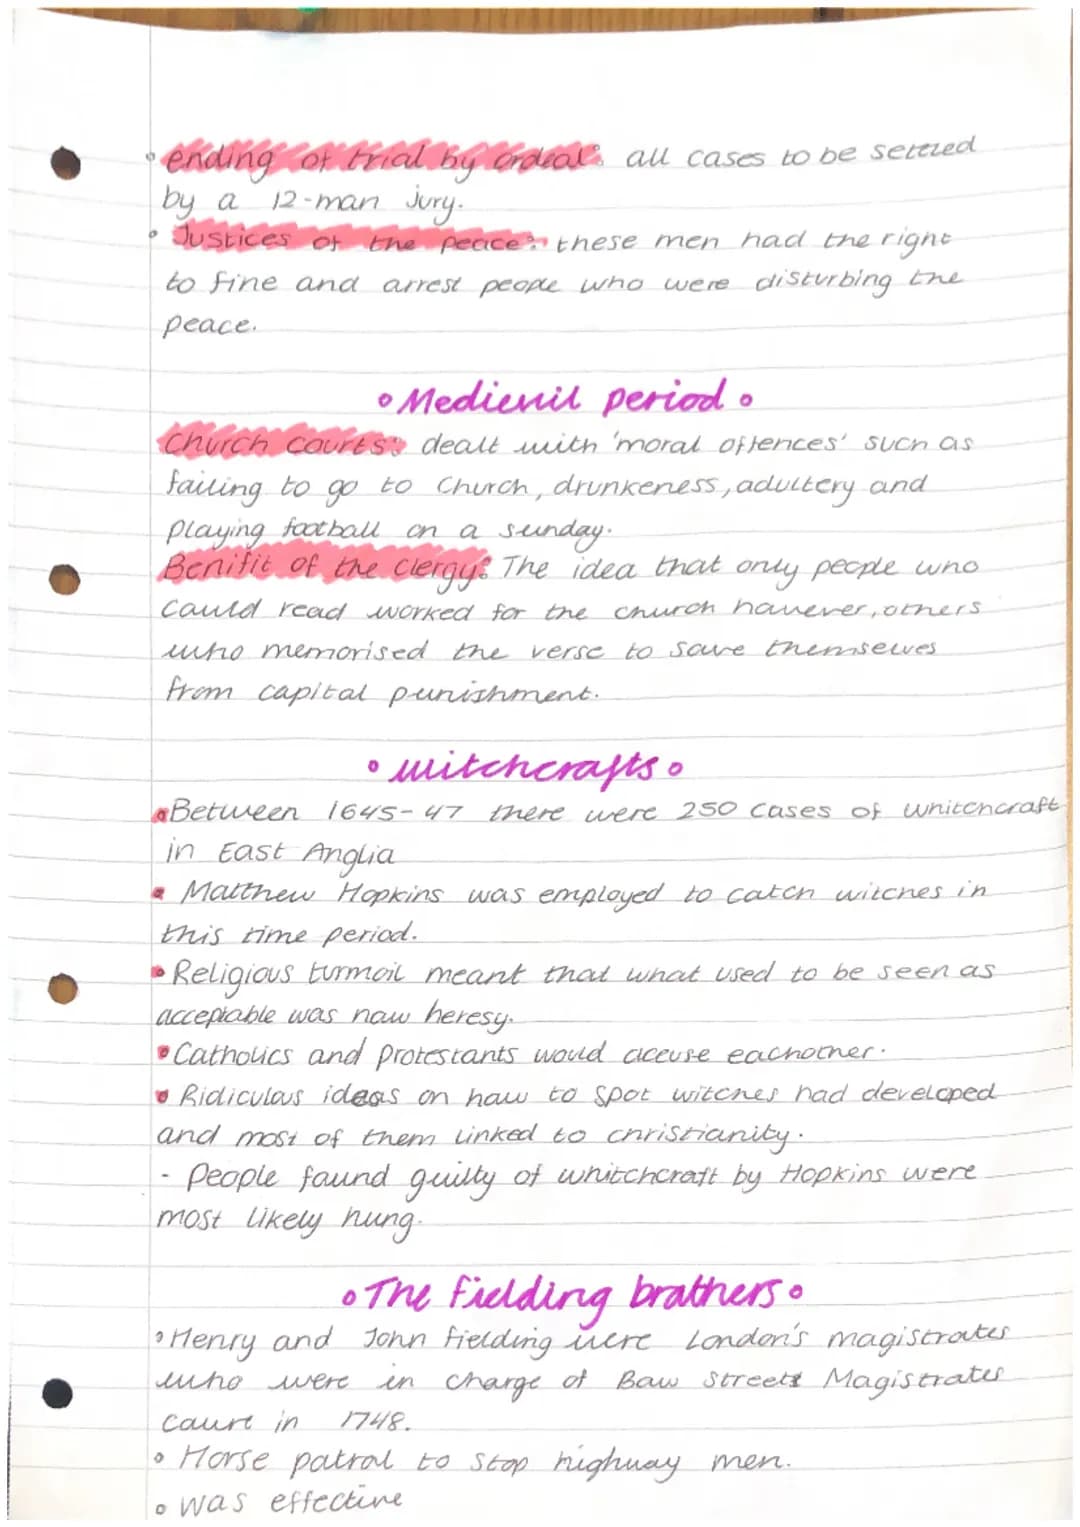 • ending of trial by ordeal: all cases to be settled
by a 12-man jury.
• Justices of the peace: these men had the right
to fine and arrest people who were disturbing the
peace.
• Medievil period •
Church courts: dealt with 'moral offences' such as
failing to go to Church, drunkeness, adultery and
playing football on a sunday.
Benifit of the clergy: The idea that only people who
could read worked for the church however, others
who memorised the verse to save themselves
from capital punishment.
• witchcrafts •
• Between 1645-47 there were 250 cases of whitchcraft
in East Anglia
• Matthew Hopkins was employed to catch witches in
this time period.
• Religious turmoil meant that what used to be seen as
acceptable was now heresy.
• Catholics and Protestants would accuse eachother.
• Ridiculous ideas on how to spot witches had developed
and most of them linked to christianity.
- People found guilty of whitchcraft by Hopkins were
most likely hung.
• The fielding brothers •
• Henry and John fielding were London's magistrates
who were in charge of Bow Streets Magistrates
court in 1748.
• Horse patrol to stop highway men.
• was effective